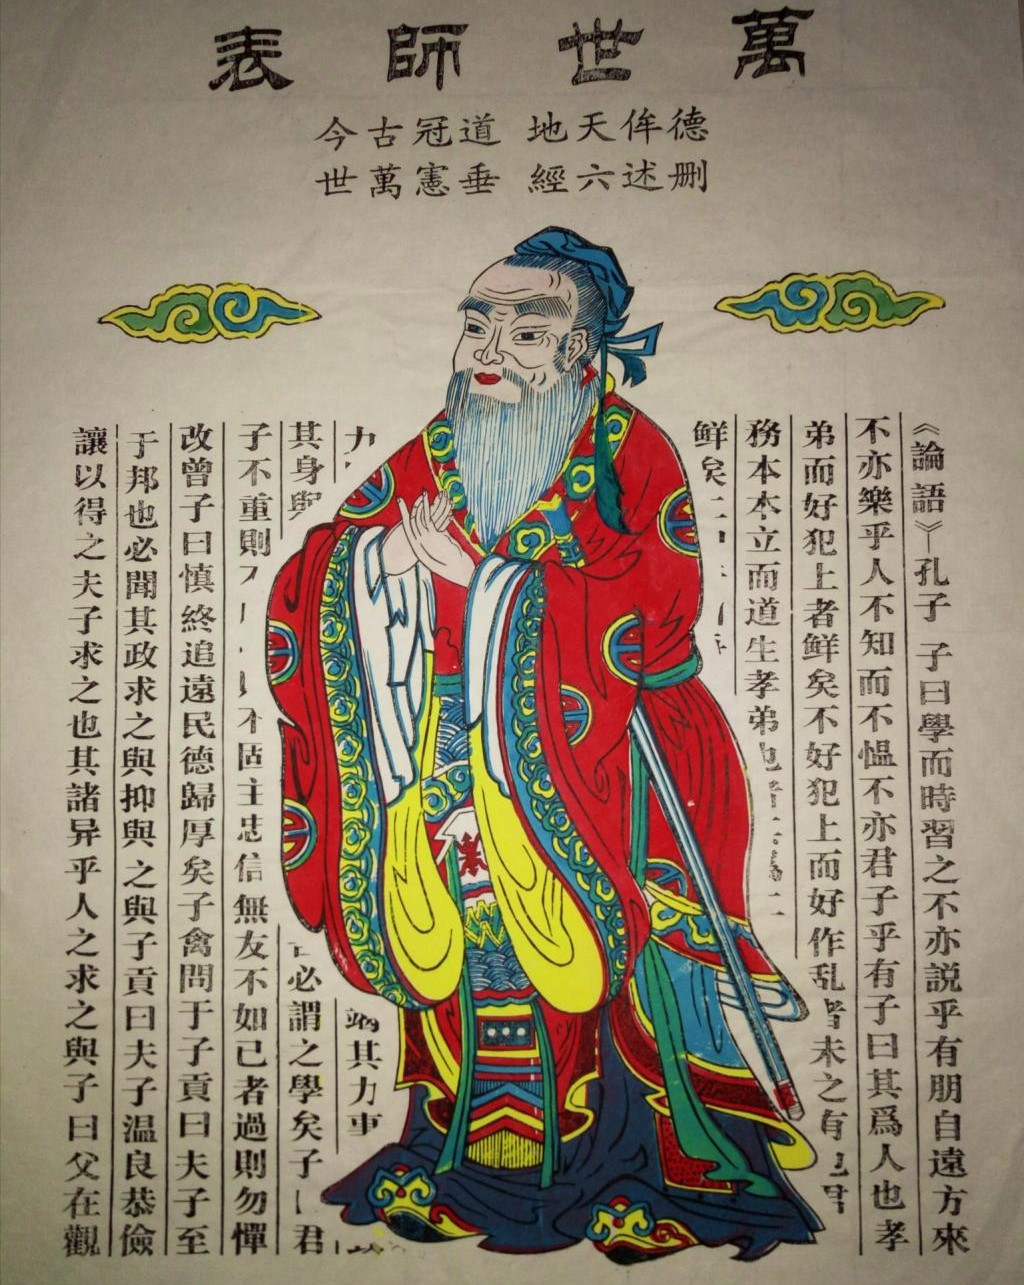 萬世師表
德侔天地 道冠古今
删述六經 垂憲萬世
《論語》—孔子 子曰學而時習之不亦説乎有朋自遠方來
不亦樂乎人不知而不愠不亦君子乎有子曰其爲人也孝
弟而好犯上者鮮矣不好犯上而好作乱者未之有
務本本立而道生孝弟也者
鮮矣
力 其力事
其身與 必謂之學矣子 君
子不重則 不固主忠信無友不如己者過則勿憚
改曾子曰慎終追遠民德歸厚矣子禽問于子貢曰夫子至
于邦也必聞其政求之與抑與之與子貢曰夫子温良恭儉
讓以得之夫子求之也其諸异乎人之求之與子曰父在觀